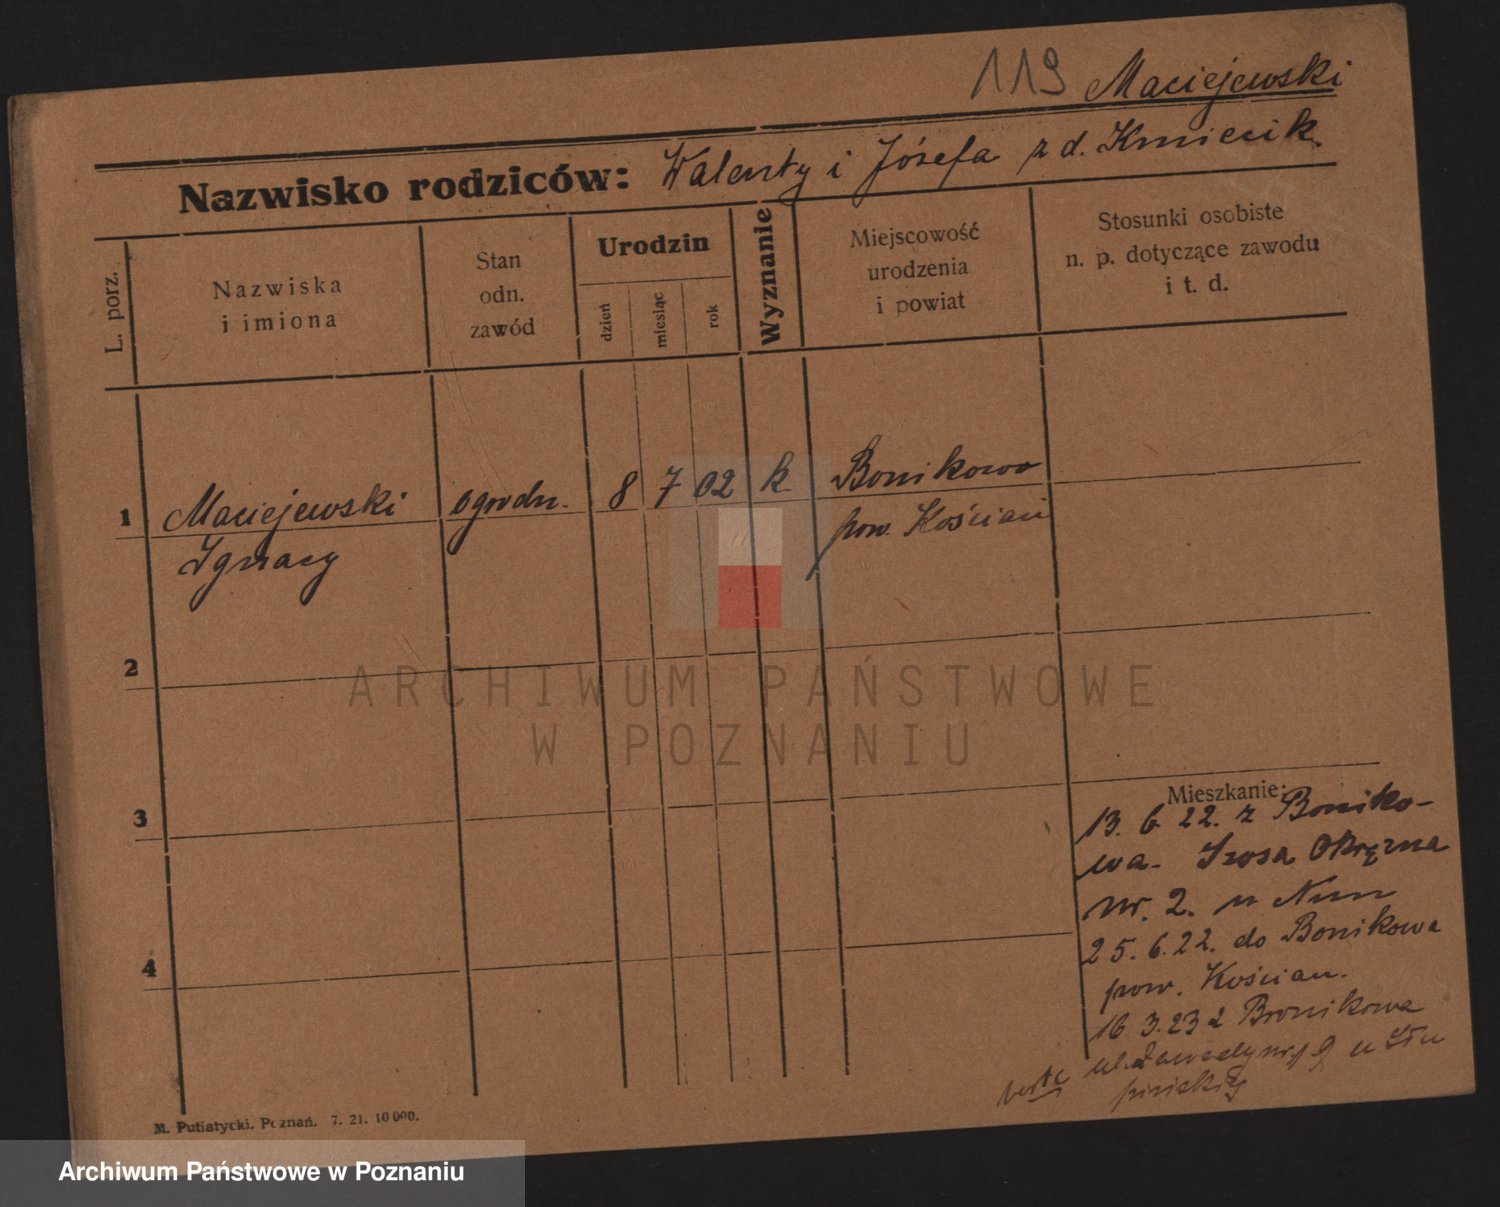 119 Maciejewski
Nazwisko rodziców: Walenty i Józefa z d. Kmiecik
L. porz.
Nazwiska
i imiona
Stan
odn.
zawód
Urodzin
dzień
miesiąc
rok
Wyznanie
Miejscowość
urodzenia
i powiat
Stosunki osobiste
n. p. dotyczące zawodu
i t. d.
1 Maciejewski ogrodn. 8 7 02 k. Bonikowo
Ignacy pow. Kościan
2
3
4
Mieszkanie:
13. 6 22. z Boniko-
wa- Szosa Okrężna
nr. 2. u
25. 6. 22. do Bonikowa
pow. Kościan.
16 3. 23 z Bronikowa
ul. u
M. Putiatycki, Poznań. 7. 21. 10 000.
ARCHIWUM PAŃSTWOWE
W POZNANIU
Archiwum Państwowe w Poznaniu